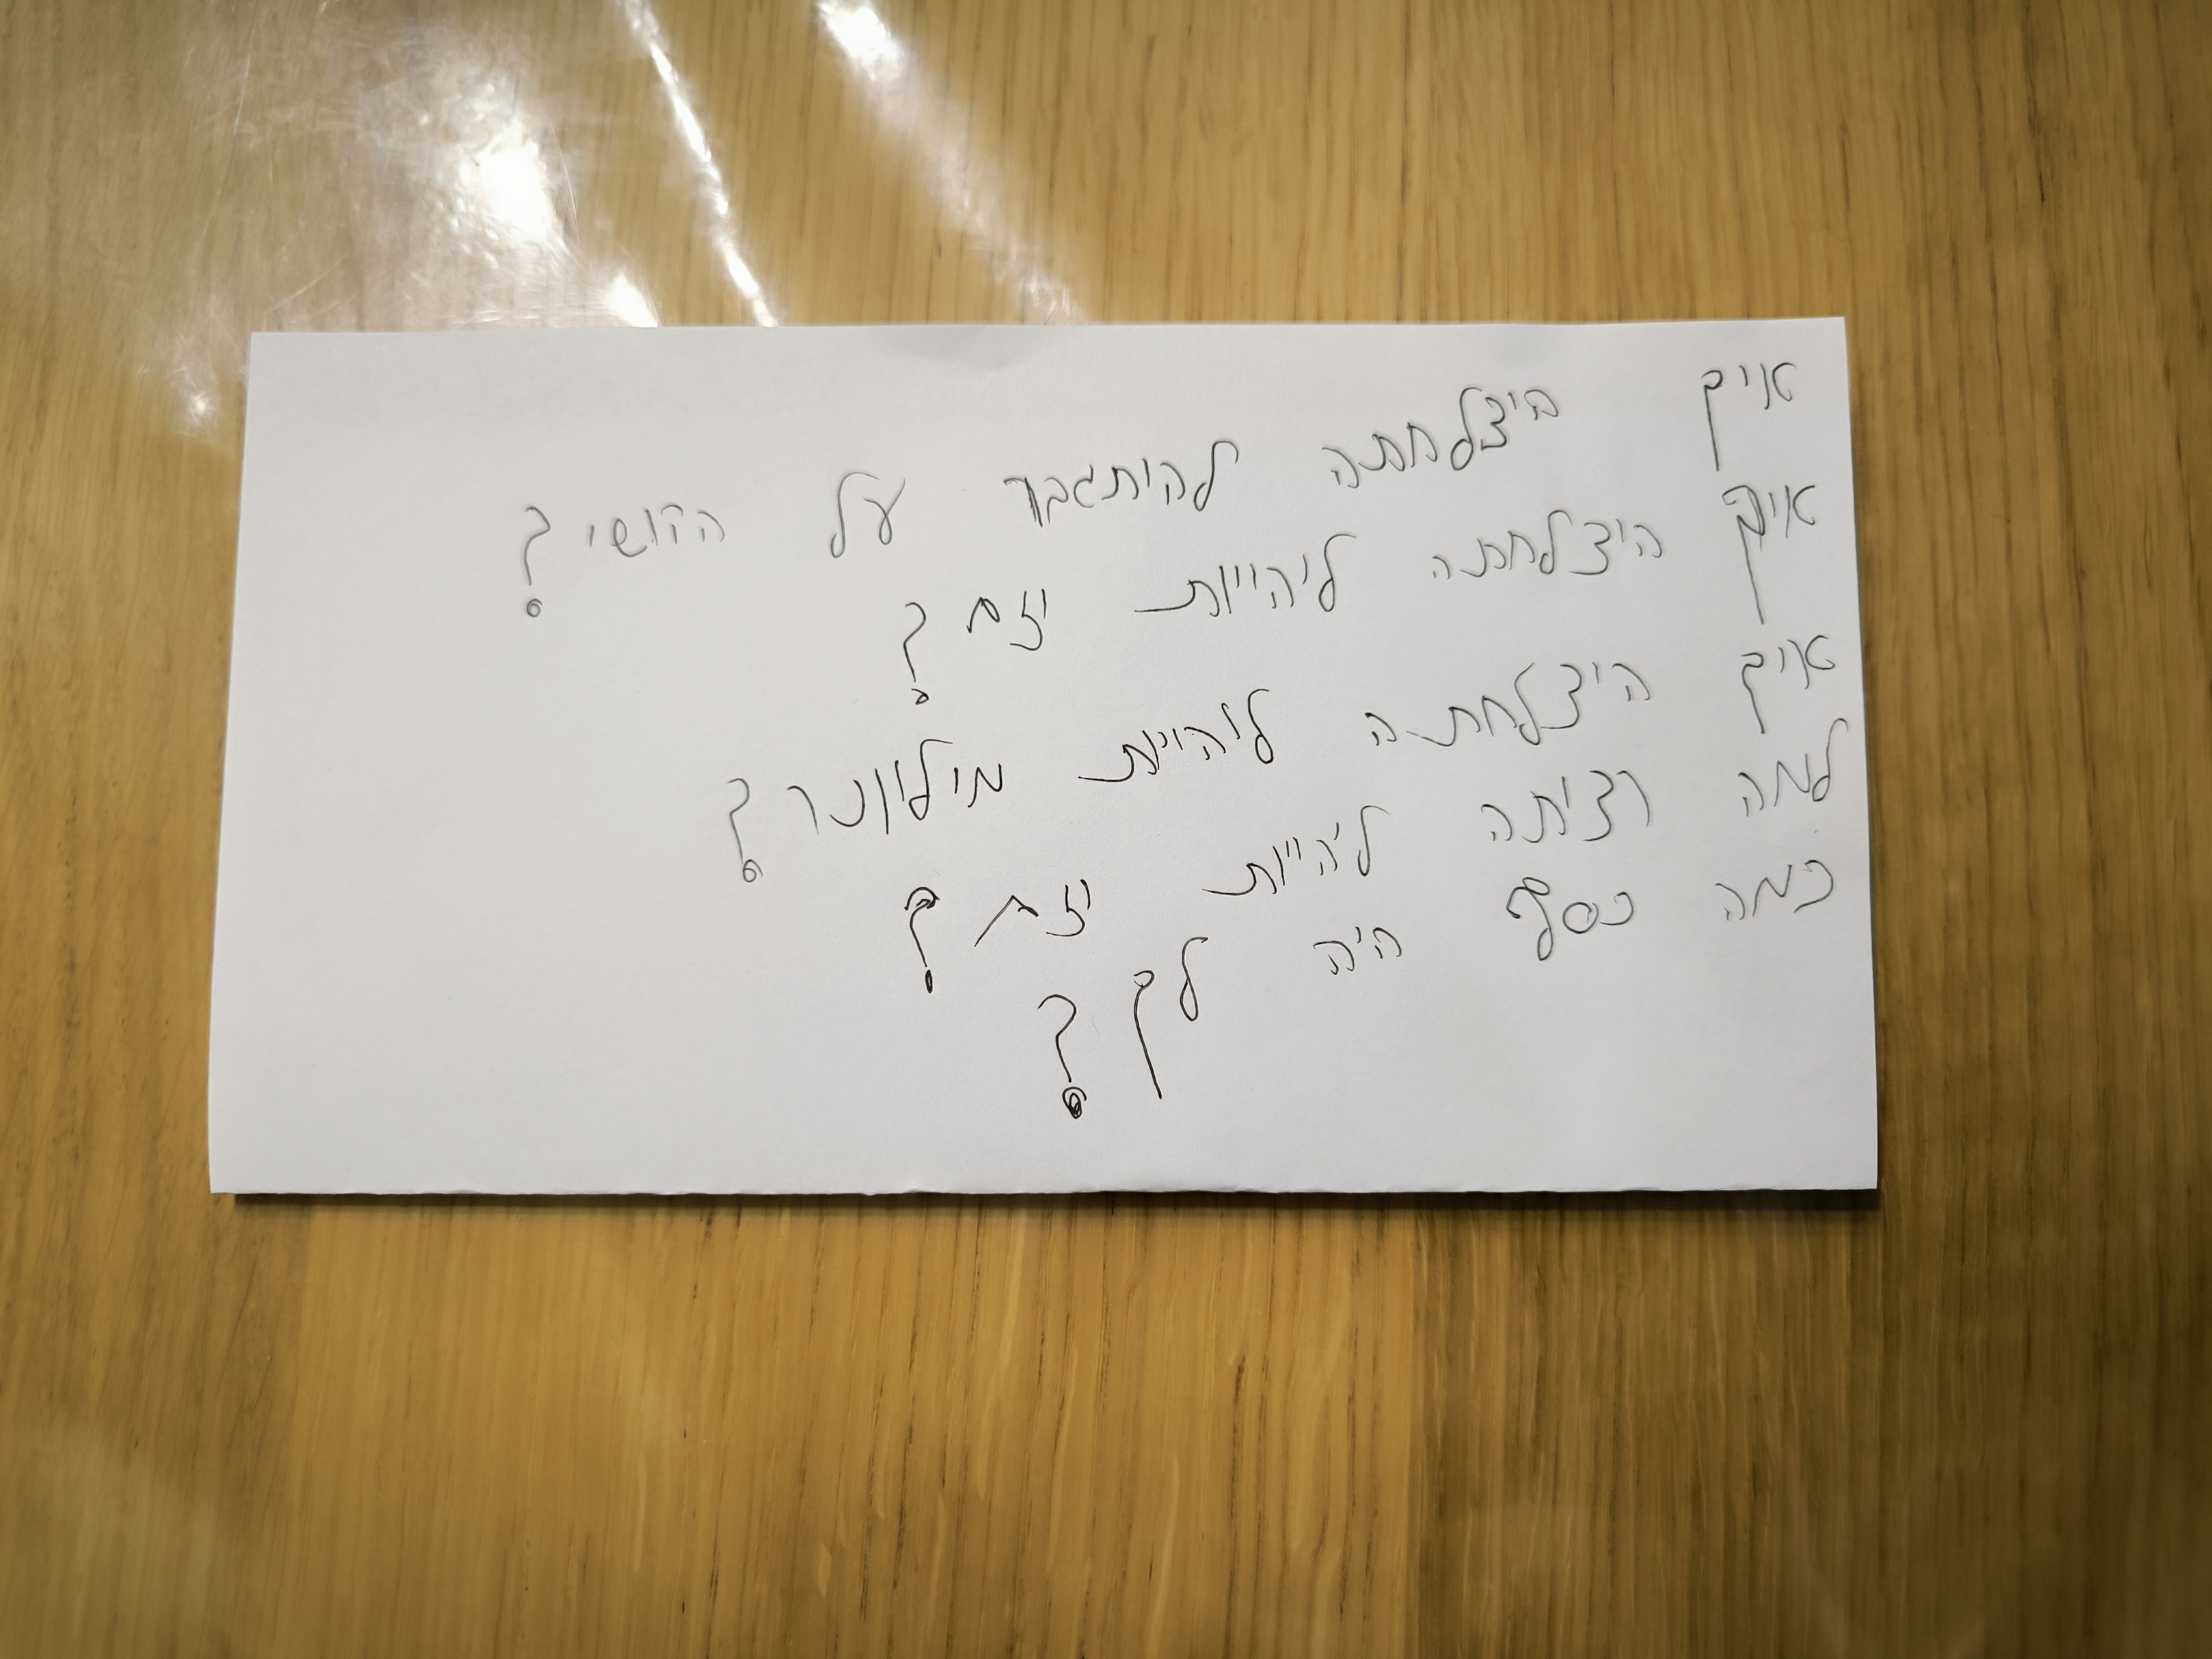 איך היצלחתה להותגבר על הקושי?
איך היצלחתה ליהיות יזם?
איך היצלחתה ליהיות מיליונר?
למה רציתה להיות יזם?
כמה כסף היה לך?